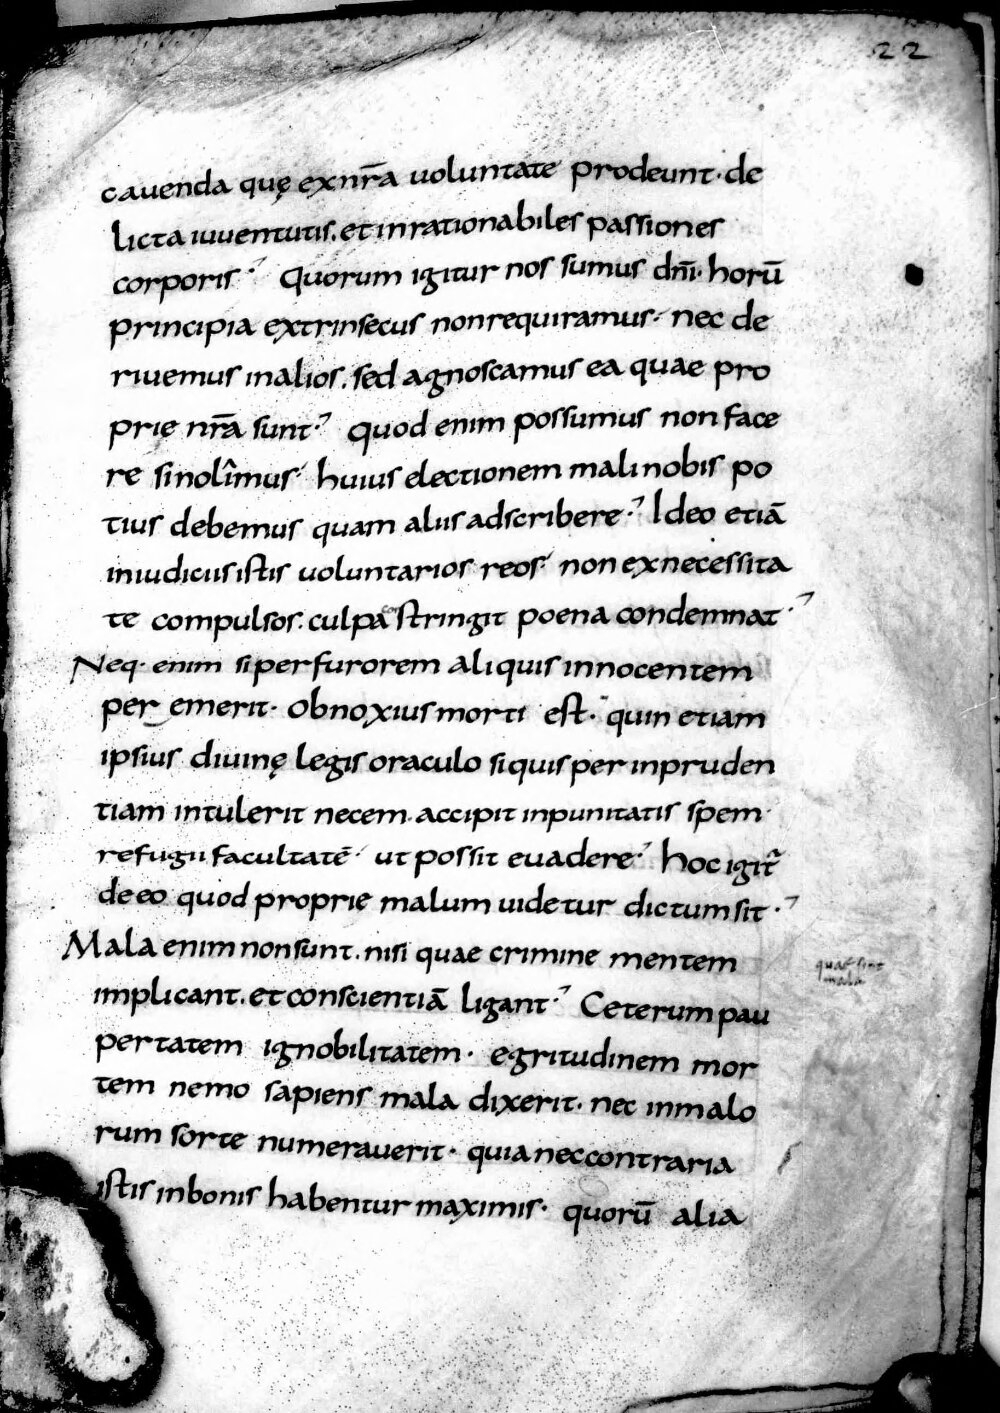 22
cauenda quę exnr̄a uoluntate prodeunt · de
licta iuuentutis. et inrationabiles passiones
corporis ·՚ Quorum igitur nos sumus dn̄i · horū
principia extrinsecus nonrequiramus · nec de
riuemus inalios. sed agnoscamus ea quae pro
prie nr̄a sunt ·՚ quod enim possumus non face
re sinolimus · huius electionem mali nobis po
tius debemus quam aliis adscribere ·՚ Ideo etiā
iniudiciis istis uoluntarios reos · non exnecessita
te compulsos. culpa constringit poena condemnat ·՚
Neq· enim siperfurorem aliquis innocentem
per emerit · obnoxius morti est · quin etiam
ipsius diuinę legis oraculo siquis per inpruden
tiam intulerit necem. accipit inpunitatis spem ·
refugii facultatē · ut possit euadere ·՚ hoc igit̄
deeo quod proprie malum uidetur dictumsit ·՚
Mala enim nonsunt. nisi quae crimine mentem
implicant. et conscientiā ligant ·՚ Ceterum pau
pertatem ignobilitatem · egritudinem mor
tem nemo sapiens mala dixerit · nec inmalo
rum sorte numerauerit · quia neccontraria
istis inbonis habentur maximis · quorū alia
quae sint
mala